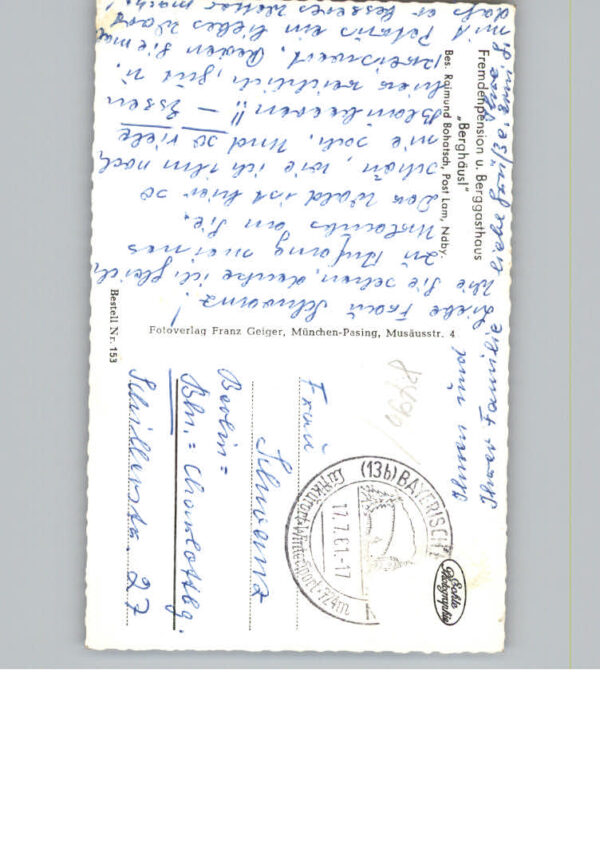 Fremdenpension u. Berggasthaus
„Berghäusl"
Bes. Raimund Bohatsch, Post Lam, Ndby.
Liebe Frau Schwanz!
Wie Sie sehen, denke ich gleich
zu Anfang meines
Urlaubs an Sie.
Der Wald ist hier so
schön, wie ich ihn noch
nie sah. Und so viele
Blaubeeren!! — Essen
hier reichlich, gut u.
preiswert. Reden Sie mal
mit Petrus ein liebes Wort
daß er besseres Wetter macht!
Ihrer Familie
Bestell Nr. 153
Fotoverlag Franz Geiger, München-Pasing, Musäusstr. 4
(13b) BAYERISCH
Luftkurort-Wintersport
17.7.61.-17
Echte
Photographie
Frau
Schwanz
Berlin =
Bln.= Charlottbg.
Schillerstr. 27